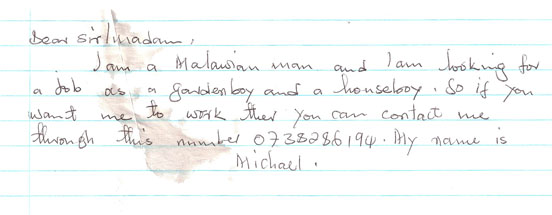 Dear sir/madam,
I am a Malawian man and I am looking for
a job as a gardenboy and a houseboy. So if you
want me to work ther you can contact me
through this number 0738286194. My name is
Michael.